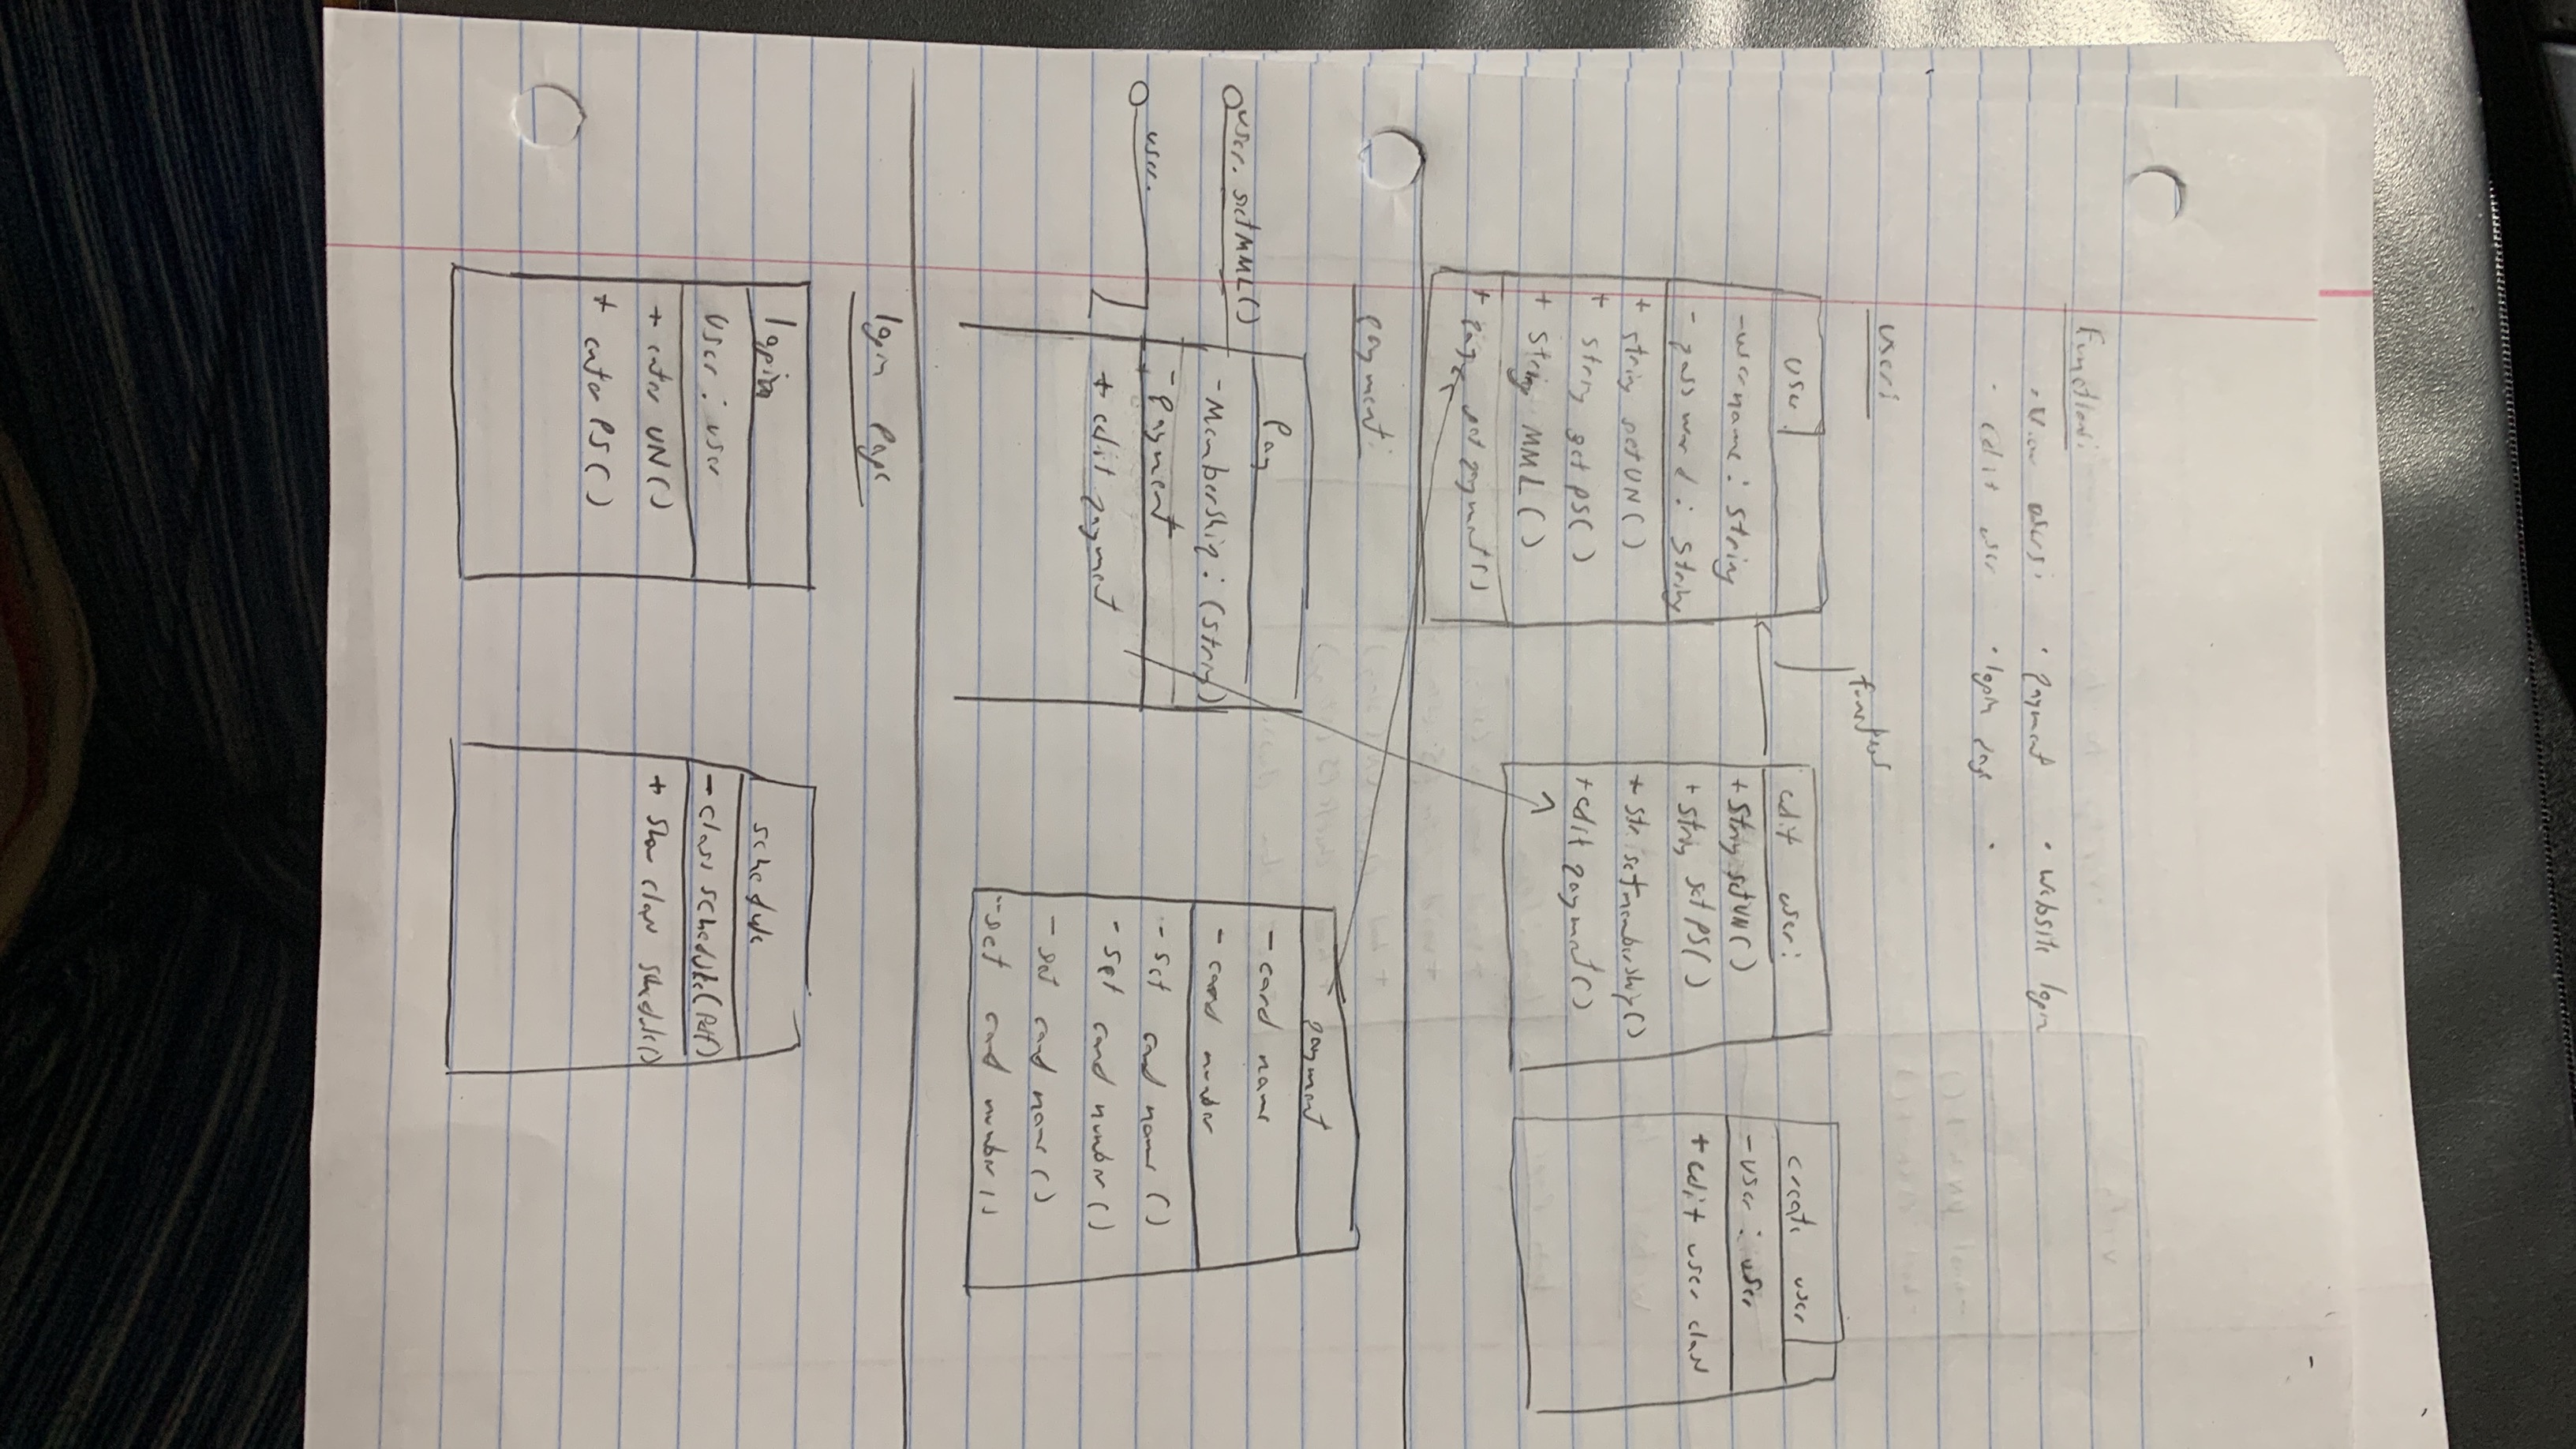 Functions:
· View users: · payment · website login
· edit user · login page ·
users
user
- username : string
- password : string
+ string getUN()
+ string getPS()
+ string MML()
+ payment()
edit user:
+ String setUN()
+ string setPS()
+ str setmembership()
+ edit payment()
create user
- user : user
+ edit user class
payment:
user. setMML()
user.
Pay
- Membership : (string)
- Payment
+ edit payment
payment
- card name
- card number
- set card name ()
- set card number ()
- set card name ()
- set card number ()
login page
login
user : user
+ enter UN()
+ enter PS()
schedule
- class schedule (Pdf)
+ show class schedule()